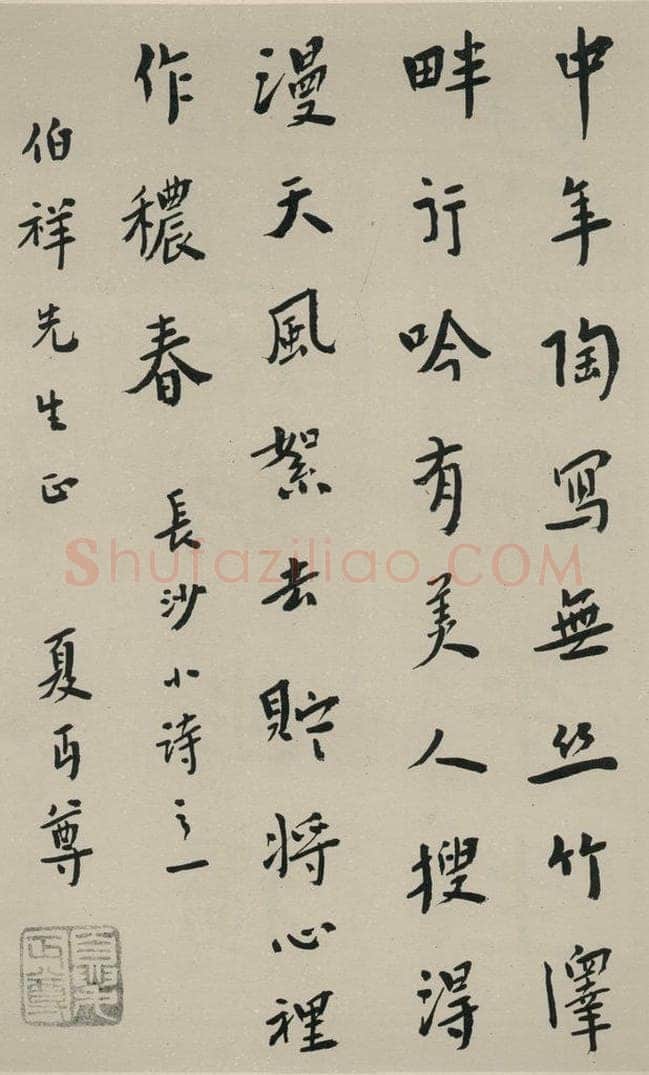 中年陶寫無丝竹澤
畔行吟有美人搜得
漫天風絮去貯將心裡
作穠春 長沙小詩之一
伯祥先生正 夏丏尊
Shufaziliao.COM